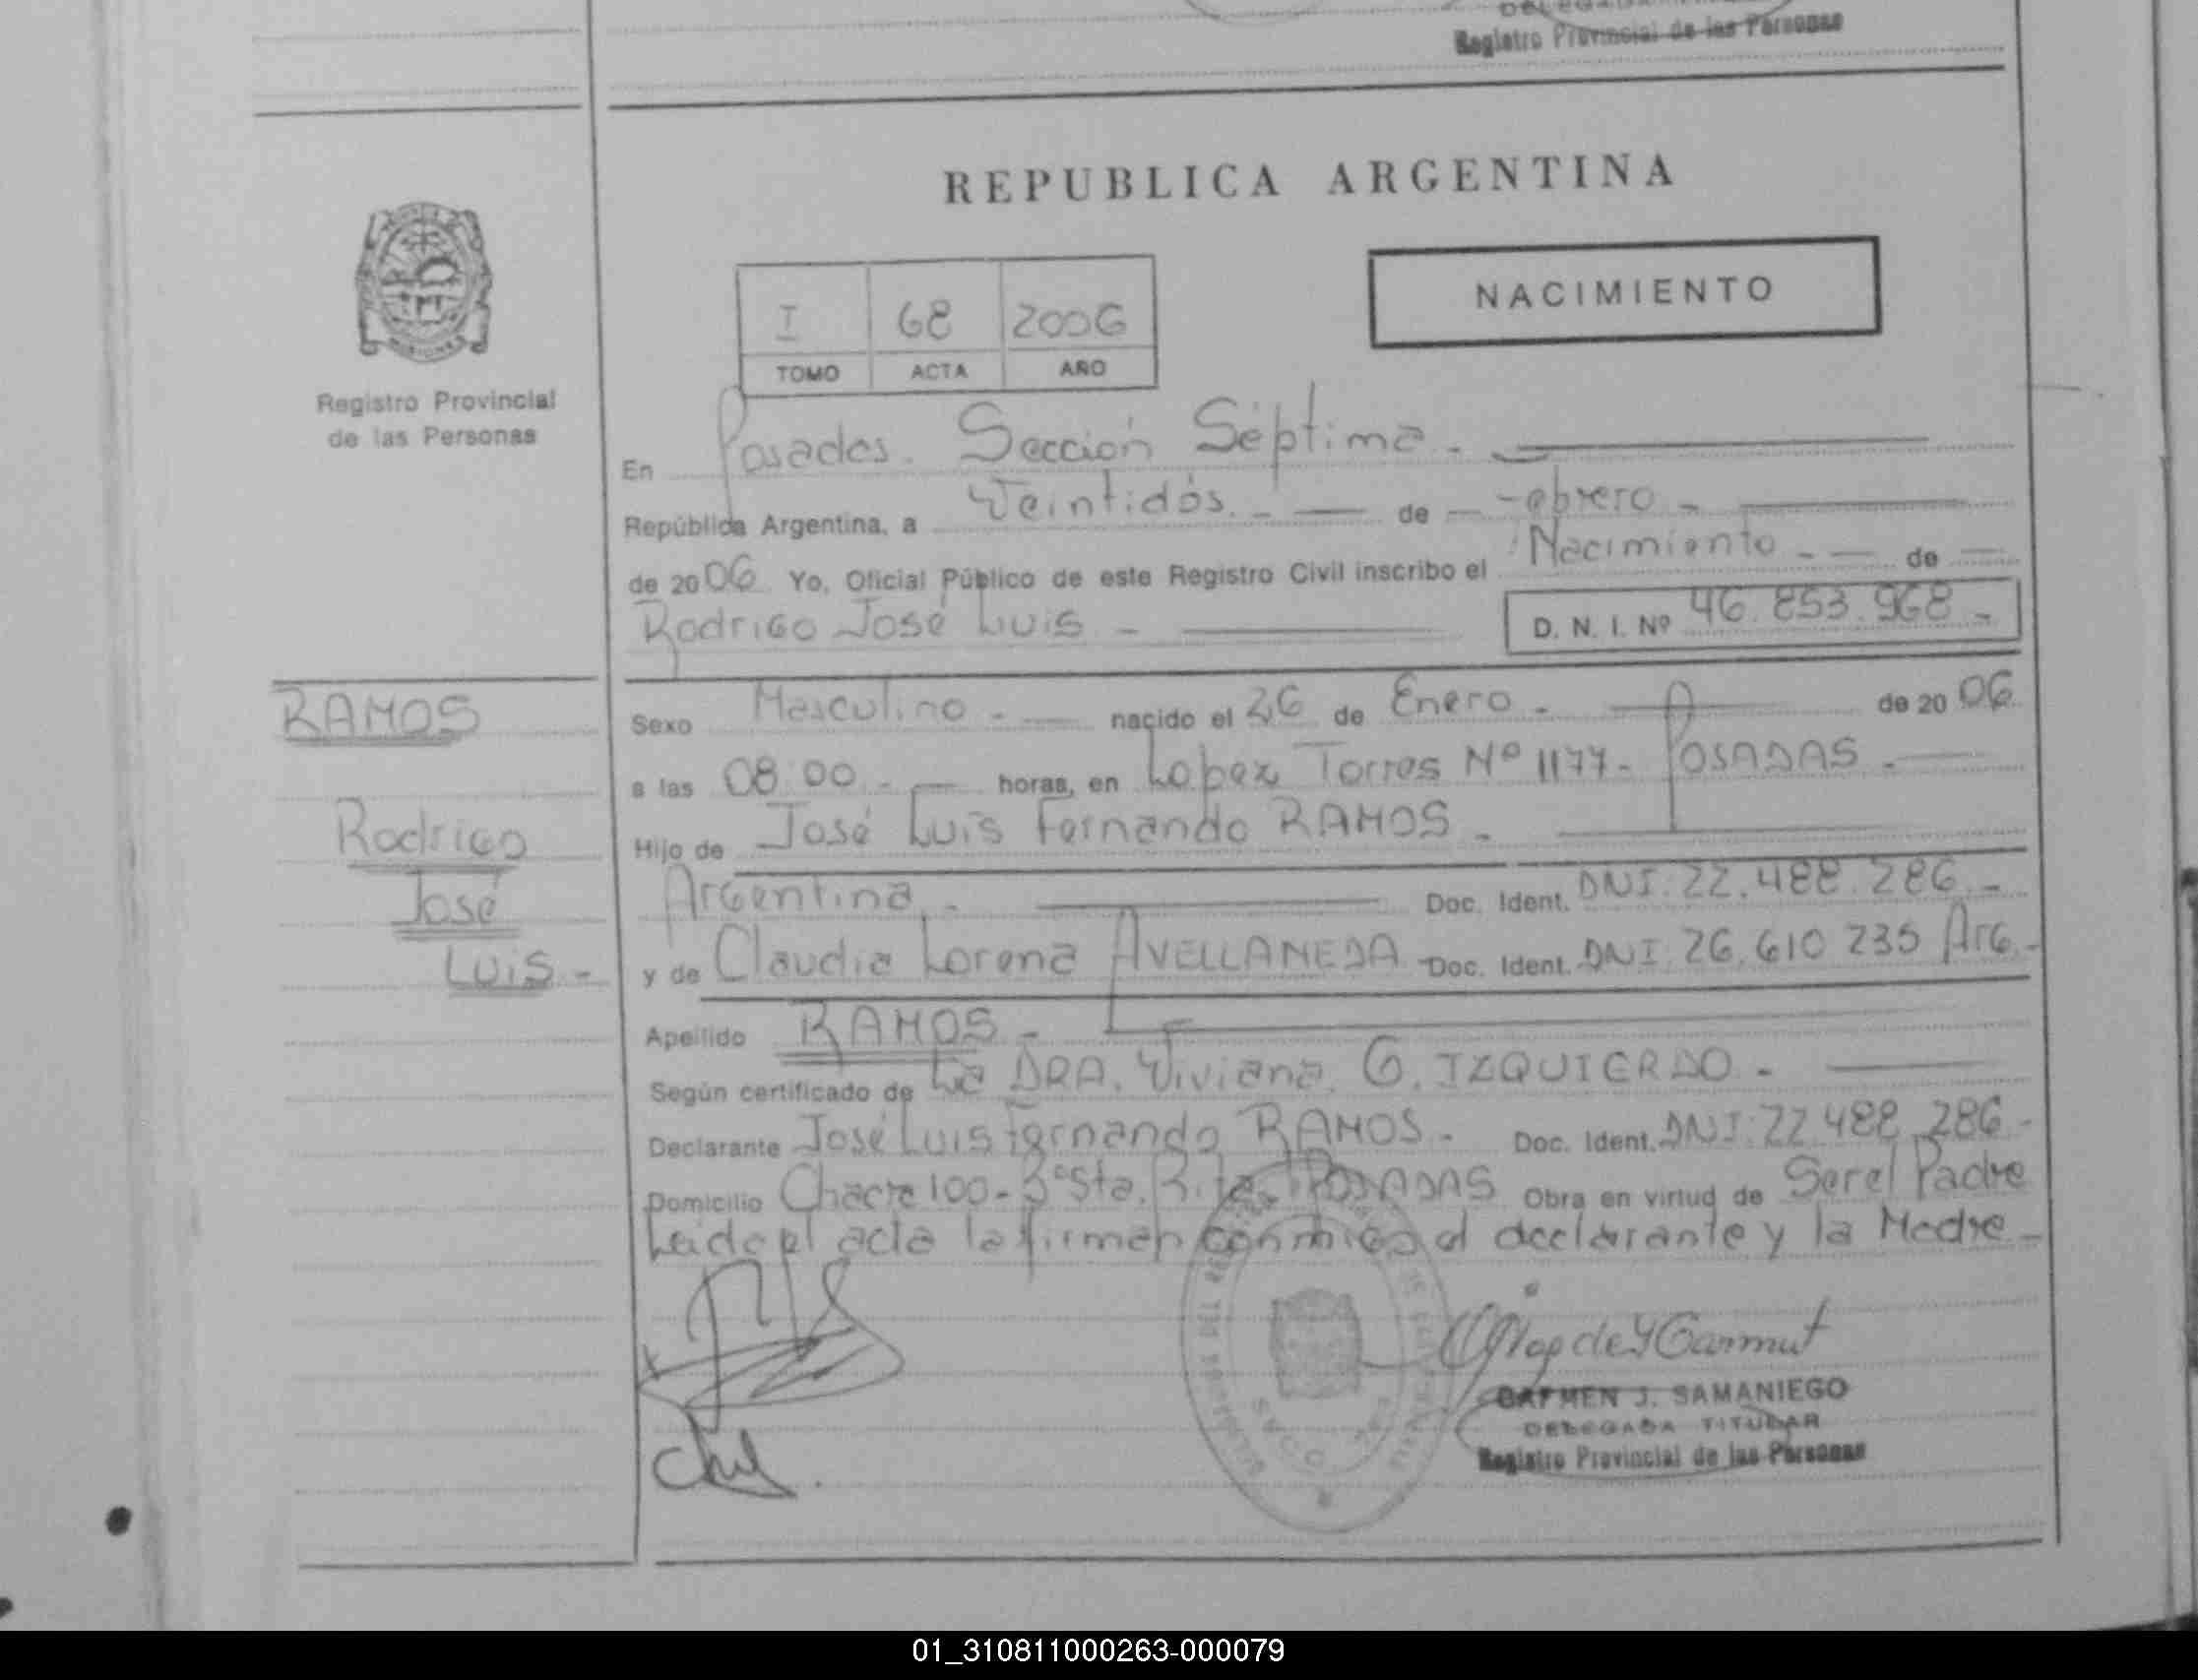 Registro Provincial de las Personas
REPUBLICA ARGENTINA
NACIMIENTO
I 68 2006
TOMO ACTA AÑO
MISIONES
Registro Provincial
de las Personas
En Posadas. Sección Séptima.-
República Argentina, a Veintidós.- de Febrero.-
de 2006 Yo, Oficial Público de este Registro Civil inscribo el Nacimiento.- de
Rodrigo José Luis.-
D. N. I. Nº 46.853.968.-
RAMOS
Rodrigo
José
Luis.-
Sexo Masculino.- nacido el 26 de Enero.- de 2006
a las 08:00.- horas, en Lopez Torres Nº 1177- POSADAS.-
Hijo de José Luis Fernando RAMOS.-
Argentina.- Doc. Ident. DNI. 22.488.286.-
y de Claudia Lorena AVELLANEDA Doc. Ident. DNI. 26.610 235 Arg.-
Apellido RAMOS.-
Según certificado de La DRA. Viviana G. IZQUIERDO.-
Declarante José Luis Fernando RAMOS.- Doc. Ident. DNI. 22.488.286.-
Domicilio Chacra 100- Bº Sta. Rita. POSADAS Obra en virtud de Ser el Padre
Leida el acta la firman conmigo el declarante y la Madre.-
CARMEN J. SAMANIEGO
DELEGADA TITULAR
Registro Provincial de las Personas
01_310811000263-000079